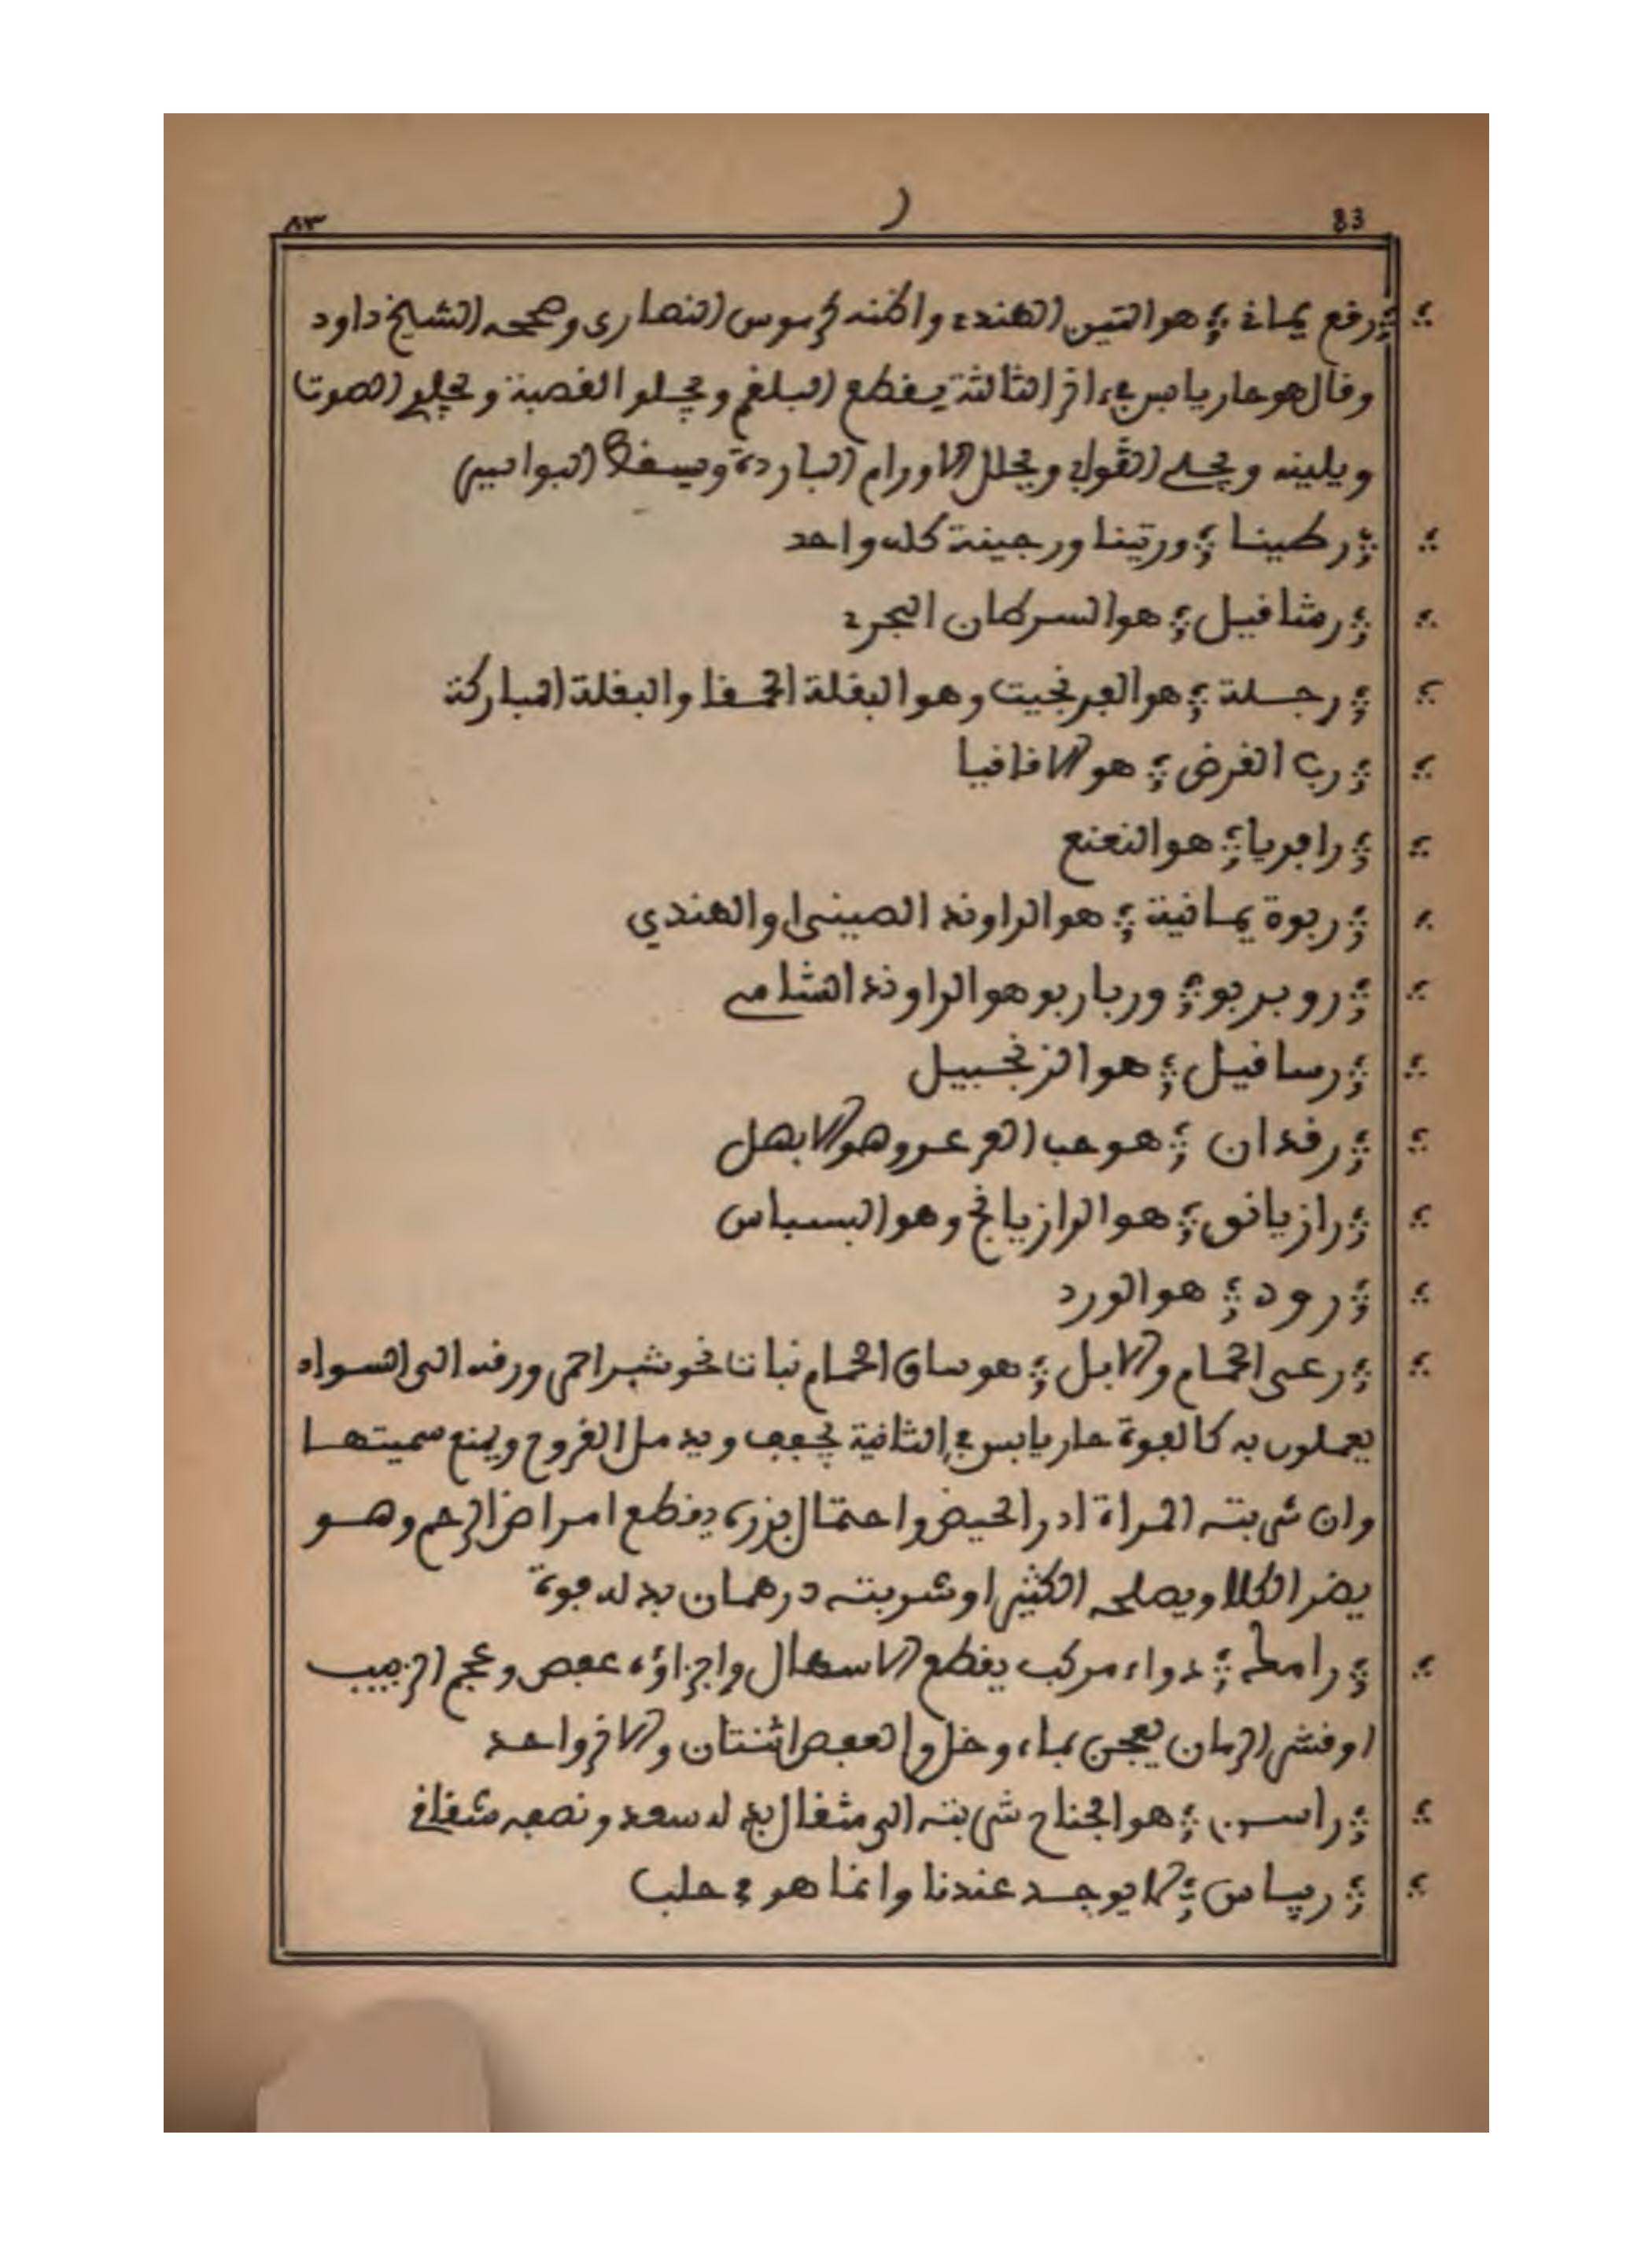 83 ر ٨٣
رقع يماني هو التين الهندي واظنه كرموس النصارى وصححه الشيخ داود
وقال هو حار يابس في اخر الثالثة يقطع البلغم ويجلو القصبة ويجلي الصوت
ويلينه ويحلل الاورام الباردة ويسقط البواسير
رطينا ورتينا ورجينة كله واحد
رمثافيل هو السرطان البحري
رجلة هو الفرفجيت وهو البقلة الحمقا والبقلة المباركة
رب القرض هو الاقاقيا
رافريا هو النعنع
ربوة يمانية هو الراوند الصيني والهندي
روبربو ورباربو هو الراوند الشامي
رسافيل هو الزنجبيل
رقدان هو حب العرعر وهو الابهل
رازيانق هو الرازيانج وهو البسباس
رود هو الورد
رعى الحمام والابل هو ساق الحمام نبات نحو شبر احمر ورقه الى السواد
يعملون به كالفوة حار يابس في الثانية يجفف ويدمل القروح ويمنع سميتها
وان شربته المراة ادر الحيض واحتمال بزره يقطع امراض الرحم وهو
يضر الكلا ويصلحه الكثيرا وشربته درهمان بدله فوة
رامك دواء مركب يقطع الاسهال واجزاؤه عفص وعجم الزبيب
او قشر الرمان يعجن بماء وخل والعفص اثنتان والاخر واحد
راسن هو الجناح شربته الى مثقال بدله سعد ونصفه شقاقل
ريباس لا يوجد عندنا وانما هو في حلب